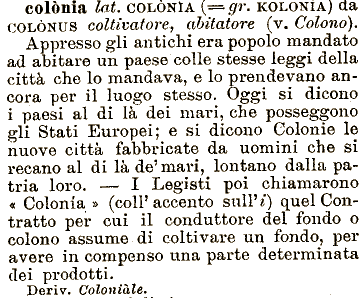 colònia lat. COLÒNIA (= gr. KOLONÌA) da
COLÒNUS coltivatore, abitatore (v. Colono).
Appresso gli antichi era popolo mandato
ad abitare un paese colle stesse leggi della
città che lo mandava, e lo prendevano an-
cora per il luogo stesso. Oggi si dicono
i paesi al di là dei mari, che posseggono
gli Stati Europei; e si dicono Colonie le
nuove città fabbricate da uomini che si
recano al di là de' mari, lontano dalla pa-
tria loro. — I Legisti poi chiamarono
« Colonìa » (coll' accento sull'i) quel Con-
tratto per cui il conduttore del fondo o
colono assume di coltivare un fondo, per
avere in compenso una parte determinata
dei prodotti.
Deriv. Coloniàle.